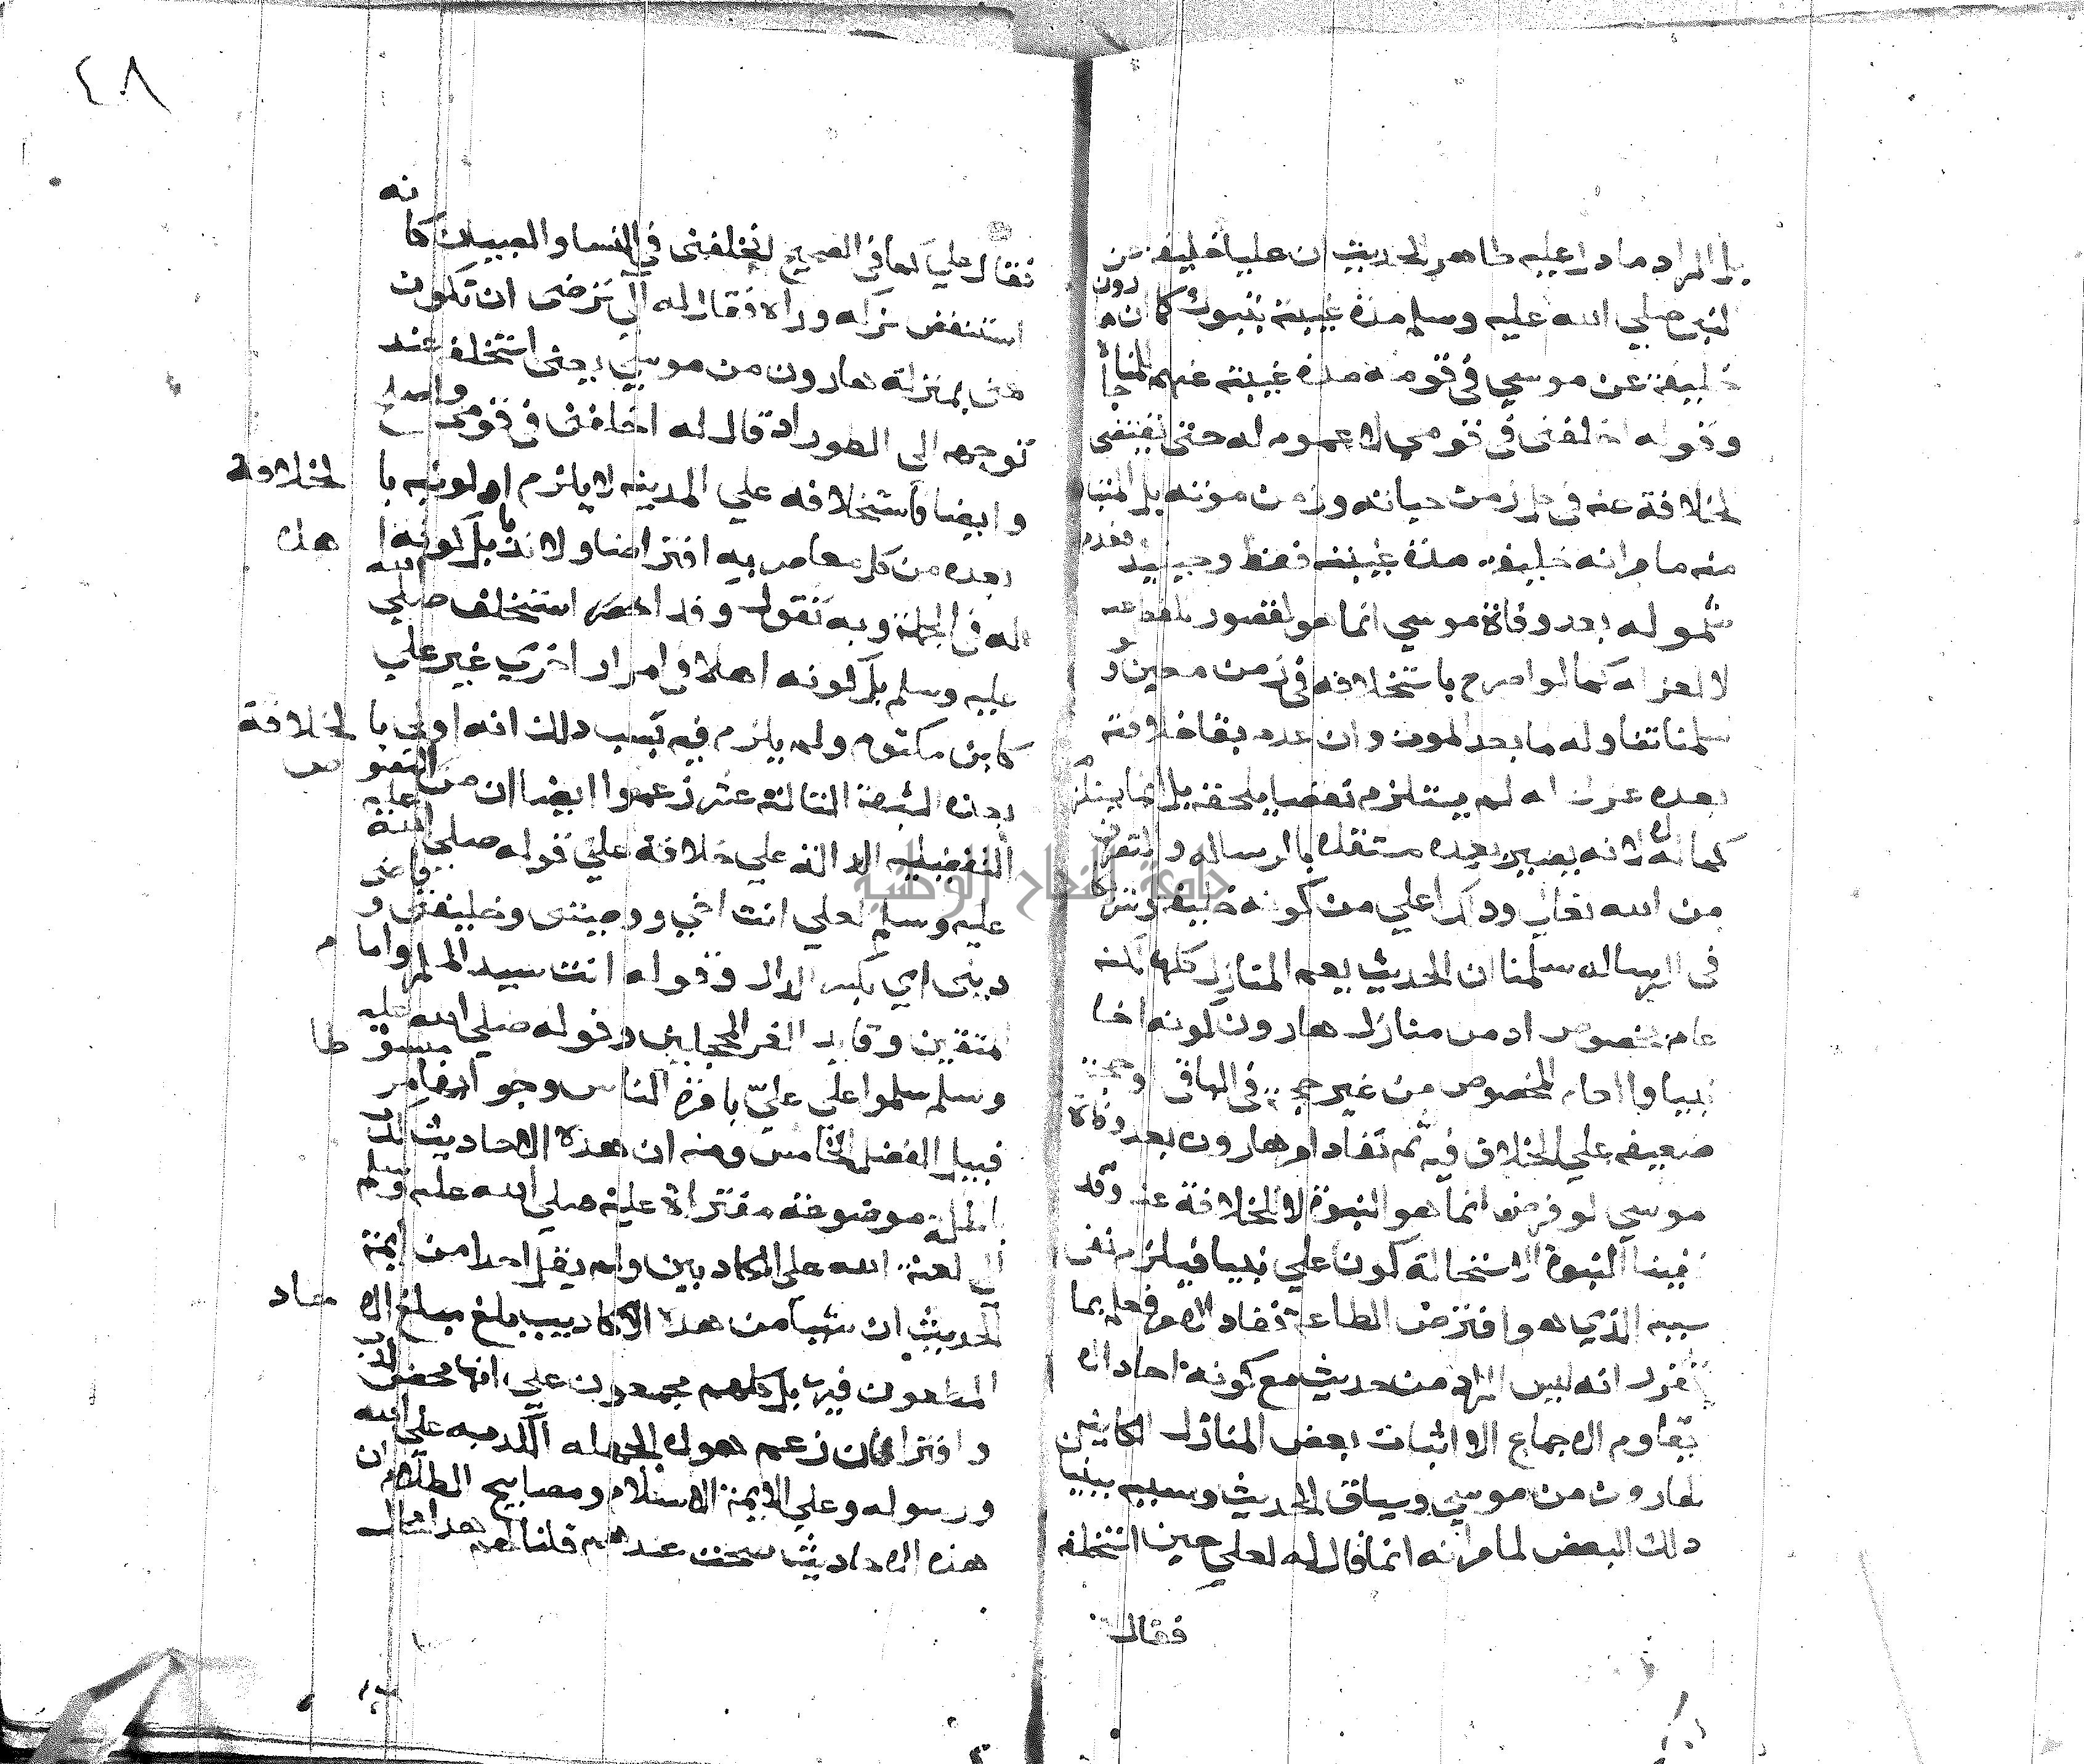 ٤٨
بل المراد ما دل عليه ظاهر الحديث ان عليا خليفة عن
النبي صلي الله عليه وسلم مدة غيبته بتبوك كما كان هارون
خليفة عن موسي في قومه مدة غيبته عنهم للمناجاة
وقوله اخلفني في قومي لا عموم له حتى يقتضى
الخلافة عنه في كل زمن حياته وزمن موته بل المتبادر
منه ما مر انه خليفة مدة غيبته فقط وحينيد فعدم
شموله بعد وفاة موسي انما هو لقصور اللفظ عنه
لا لعزله كما لو اصرح باستخلافه في زمن معين ولو
سلمنا تناوله ما بعد الموت وان عدم بقا خلافته
بعده عزل له لم يستلزم نقصا يلحقه بل انما يستلزم
كمالا له لانه يصير بعده مستقلا بالرساله والتصرف
من الله تعالي وذلك اعلي من كونه خليفة وشريكا
في الرساله سلمنا ان الحديث يعم المنازل كلها لكنه
عام مخصوص اذ من منازل هارون كونه اخا
نبيا والعام المخصوص من غير حجة في الباقي او حجة
ضعيفه علي الخلاف فيه ثم نفاذ امر هارون بعد وفاة
موسي لو فرض انما هو للنبوة لا للخلافة عنه وقد
نفينا النبوة لاستحالة كون علي نبيا فيلزم نفى
سببه الذي هو افتراض الطاعة ونفاذ الامر فعلم بما
تقرر انه ليس المراد من حديث مع كونه احادا لا
يقاوم الاجماع الا اثبات بعض المنازل الكاينه
لهارون من موسي وسياق الحديث وسببه يبينان
ذلك البعض لما مر انه انما قال له لعلي حين استخلفه
فقال
فقال علي كما في الصحيح اتخلفنى في النسا والصبيان كانه
استنقص تركه وراه فقال له الا ترضى ان تكون
منى بمنزلة هارون من موسي يعنى استخلفه عند
توجهه الي الطور اذ قال له اخلفنى في قومى واصلح
وايضا فاستخلافه علي المدينه لا يلزم اولويته بالخلافة
بعده من كل معاصريه افتراضا ولا ندبا بل كونه اهلا
له في الجملة وبه نقول وقد استخلف صلي الله
عليه وسلم في مرار اخرى غير علي
كابن مكتوم ولم يلزم فيه بسبب ذلك انه اولي بالخلافة
بعده الشبهة الثالثة عشر زعموا ايضا ان من النصوص
التفصيلية الدالة علي خلافة علي قوله صلي الله عليه
عليه وسلم لعلي انت اخي ووصيتى وخليفتى وقاضى
دينى اي بكسر الدال وقوله انت سيد المسلمين وامام
المتقين وقايد الغر المحجلين وقوله صلي الله عليه
وسلم سلموا علي علي بامرة الناس وجوابه مر مبسوطا
قبيل الفصل الخامس ومنه ان هذه الاحاديث كذب
باطلة موضوعة مفتراة عليه صلي الله عليه وسلم
الا لعنة الله على الكاذبين ولم يقل احد من ايمة
الحديث ان شيا من هذه الاكاذيب بلغ مبلغ الاحاد
المطعون فيها بل كلهم مجمعون علي انها محض كذب
وافترا فان زعم هولا الجهله الكذبه علي الله
ورسوله وعلي ايمة الاسلام ومصابيح الظلام ان
هذه الاحاديث صحت عندهم قلنا لهم هذا محال
جامعة النجاح الوطنية